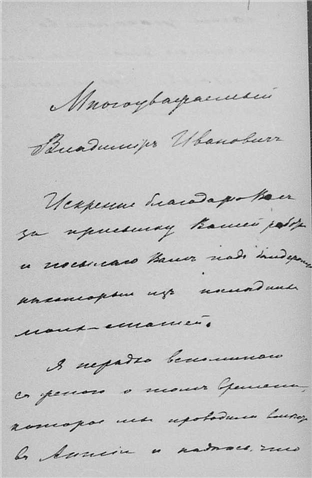 Многоуважаемый
Владиміръ Ивановичъ
Искренне благодарю Васъ
за присылку Вашей работы
и посылаю Вамъ подъ бандеролью
некоторыя изъ последнихъ
моихъ статей.
Я нередко вспоминаю
о томъ времени,
которое мы проводили вместе
въ Англіи и надеюсь, что